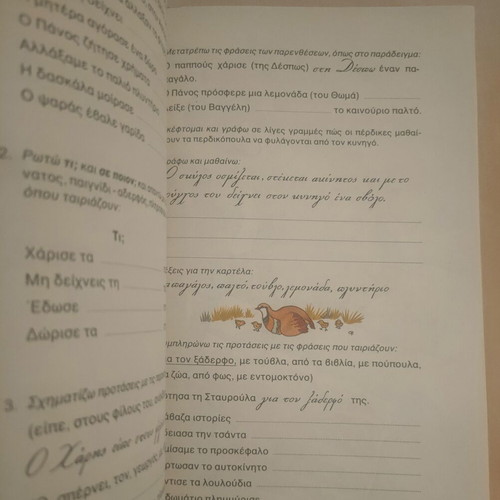 μητέρα αγόρασε ένα
Ο Πάνος ζήτησε χρήματα
Αλλάξαμε το παλιό
Η δασκάλα μοίρασε
Ο ψαράς έβαλε γαρίδα
2. Ρωτώ τι; και σε ποιον; και
νατος, παιχνίδι - αδερφός,
όπου ταιριάζουν:
Τι;
Χάρισε τα
Μη δείχνεις τη
Έδωσε
Δώρισε τα
3. Σχηματίζω προτάσεις με τις
(είπε, στους φίλους του,
Ο Χάρης είπε
σπέρνει, τον, γεωργός,
Μετατρέπω τις φράσεις των παρενθέσεων, όπως στο παράδειγμα:
Ο παππούς χάρισε (της Δέσπως) στη Δέσπω έναν πα-
αγάλο.
Ο Πάνος πρόσφερε μια λεμονάδα (του Θωμά)
είξε (του Βαγγέλη) το καινούριο παλτό.
κέφτομαι και γράφω σε λίγες γραμμές πώς οι πέρδικες μαθαί-
ουν τα περδικόπουλα να φυλάγονται από τον κυνηγό.
ράφω και μαθαίνω:
Ο σκύλος οσμίζεται, στέκεται ακίνητος και με το
ρύγχος του δείχνει στον κυνηγό ένα σβόλο.
έξεις για την καρτέλα:
παπαγάλος, παλτό, τούβλο, λεμονάδα, πλυντήριο
υμπληρώνω τις προτάσεις με τις φράσεις που ταιριάζουν:
ια τον ξάδερφο, με τούβλα, από τα βιβλία, με πούπουλα,
α ζώα, από φως, με εντομοκτόνο)
ήτησα τη Σταυρούλα για τον ξάδερφό της.
άβαζα ιστορίες
δειασα την τσάντα
μίσαμε το προσκέφαλο
όρτωσαν το αυτοκίνητο
ντισε τα λουλούδια
δωμάτιο πλημμύρισε